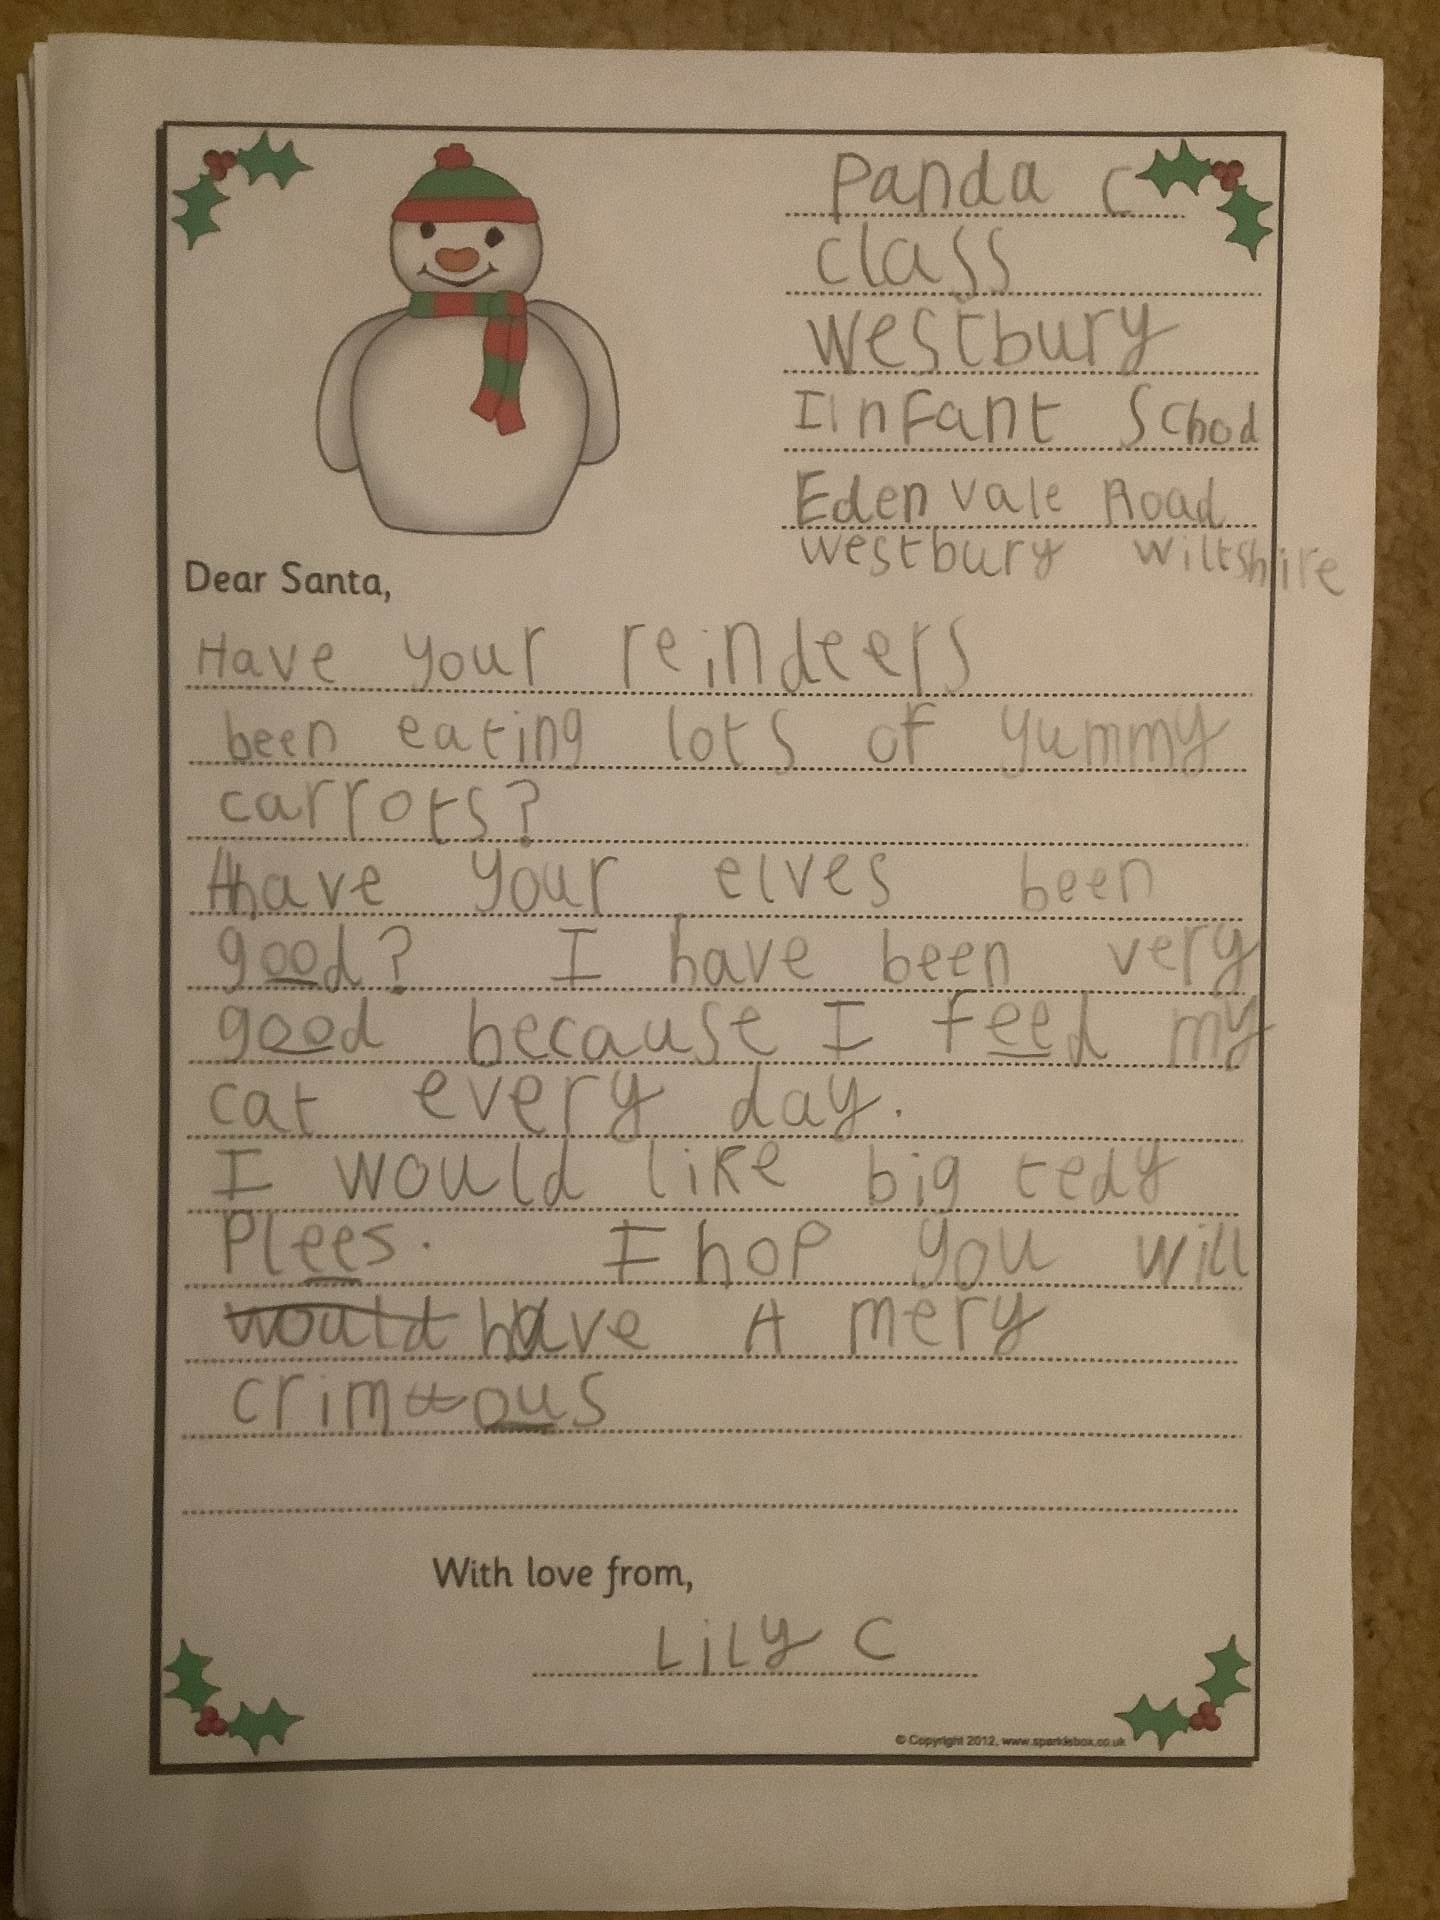 Panda C
class
Westbury
Infant School
Eden Vale Road
Westbury Wiltshire
Dear Santa,
Have your reindeers
been eating lots of yummy
carrots?
Have your elves been
good? I have been very
good because I feed my
cat every day.
I would like big tedy
Plees. I hop you will
would have A mery
crimous
With love from,
Lily C
© Copyright 2012, www.sparklebox.co.uk